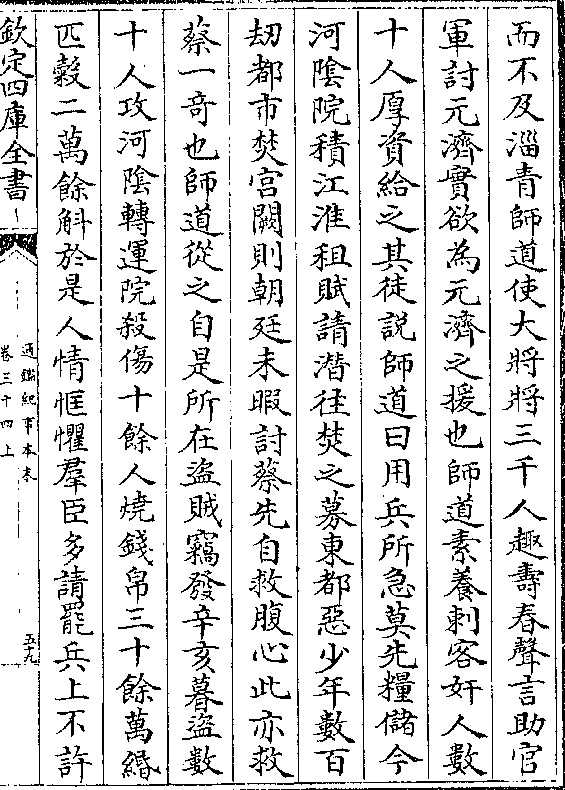 而不及淄青師道使大將將三千人趣壽春聲言助官
軍討元濟實欲為元濟之援也師道素養刺客奸人數
十人厚資給之其徒説師道曰用兵所急莫先糧儲今
河隂院積江淮租賦請潛往焚之募東都惡少年數百
刼都市焚宫闕則朝廷未暇討蔡先自救腹心此亦救
蔡一竒也師道從之自是所在盜賊竊發辛亥暮盜數
十人攻河隂轉運院殺傷十餘人燒錢帛三十餘萬緡
匹糓二萬餘斛於是人情恇懼羣臣多請罷兵上不許
欽定四庫全書
通鑑紀事本末
卷三十四上
五十九